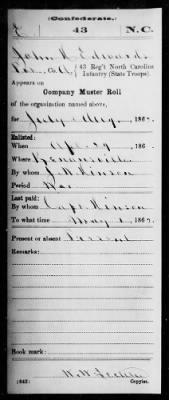 (Confederate.)
E 43 N.C.
John K Edwards
Pvt, Co. A, 43 Reg't North Carolina
Infantry (State Troops).
Appears on
Company Muster Roll
of the organization named above,
for July & Aug, 186
Enlisted:
When 29, 186
Where Kenansville
By whom J. W. Kinson
Period War
Last paid:
By whom Capt. Kinson
To what time May 1, 186
Present or absent Present
Remarks:
Book mark:
W. W.
(642) Copyist.